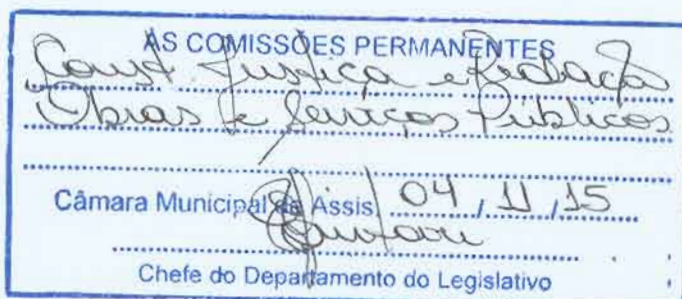 AS COMISSÕES PERMANENTES
Const. Justiça e Redação
Obras e Serviços Públicos
Câmara Municipal de Assis, 04 / 11 / 15
Chefe do Departamento do Legislativo